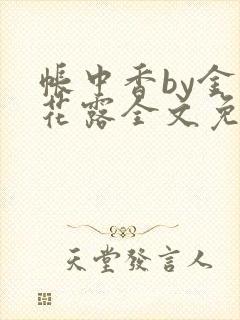 帳中香by金
花露全文免
天堂發言人